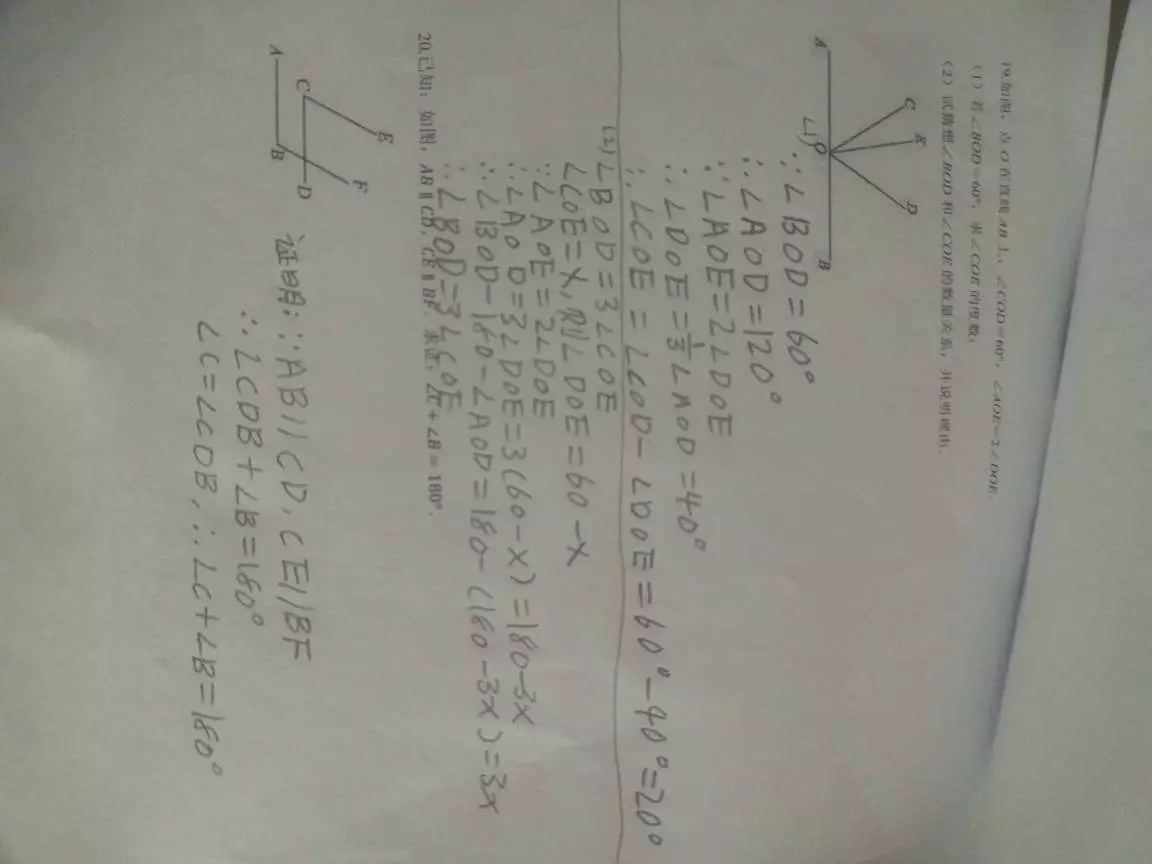 19.如图，点O在直线AB上，∠COD=60°，∠AOE=2∠DOE.
(1) 若∠BOD=60°，求∠COE的度数；
(2) 试猜想∠BOD和∠COE的数量关系，并说明理由.
A
O
B
C
E
D
(1)
∵∠BOD=60°
∴∠AOD=120°
∵∠AOE=2∠DOE
∴∠DOE=⅓∠AOD=40°
∴∠COE=∠COD-∠DOE=60°-40°=20°
(2)∠BOD=3∠COE
∠COE=x,则∠DOE=60-x
∵∠AOE=2∠DOE
∴∠AOD=3∠DOE=3(60-x)=180-3x
∴∠BOD=180-∠AOD=180-(180-3x)=3x
∴∠BOD=3∠COE
20.已知：如图，AB∥CD，CE∥BF. 求证：∠C+∠B=180°.
A
B
C
D
E
F
证明：∵AB//CD,CE//BF
∴∠CDB+∠B=180°
∠C=∠CDB,∴∠C+∠B=180°